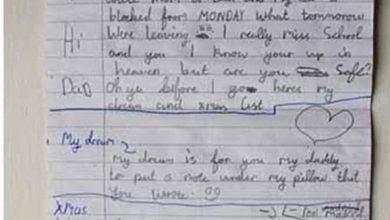 blocked from MONDAY What tommorow
Hi
Were leaving I really miss School
and you I know your up in
heaven but are you Safe?
Dad
Oh ya before I go heres my
dream and xmas List
My dream
My dream is for you my daddy
to put a note under my pillow that
you wrote.
Xmas